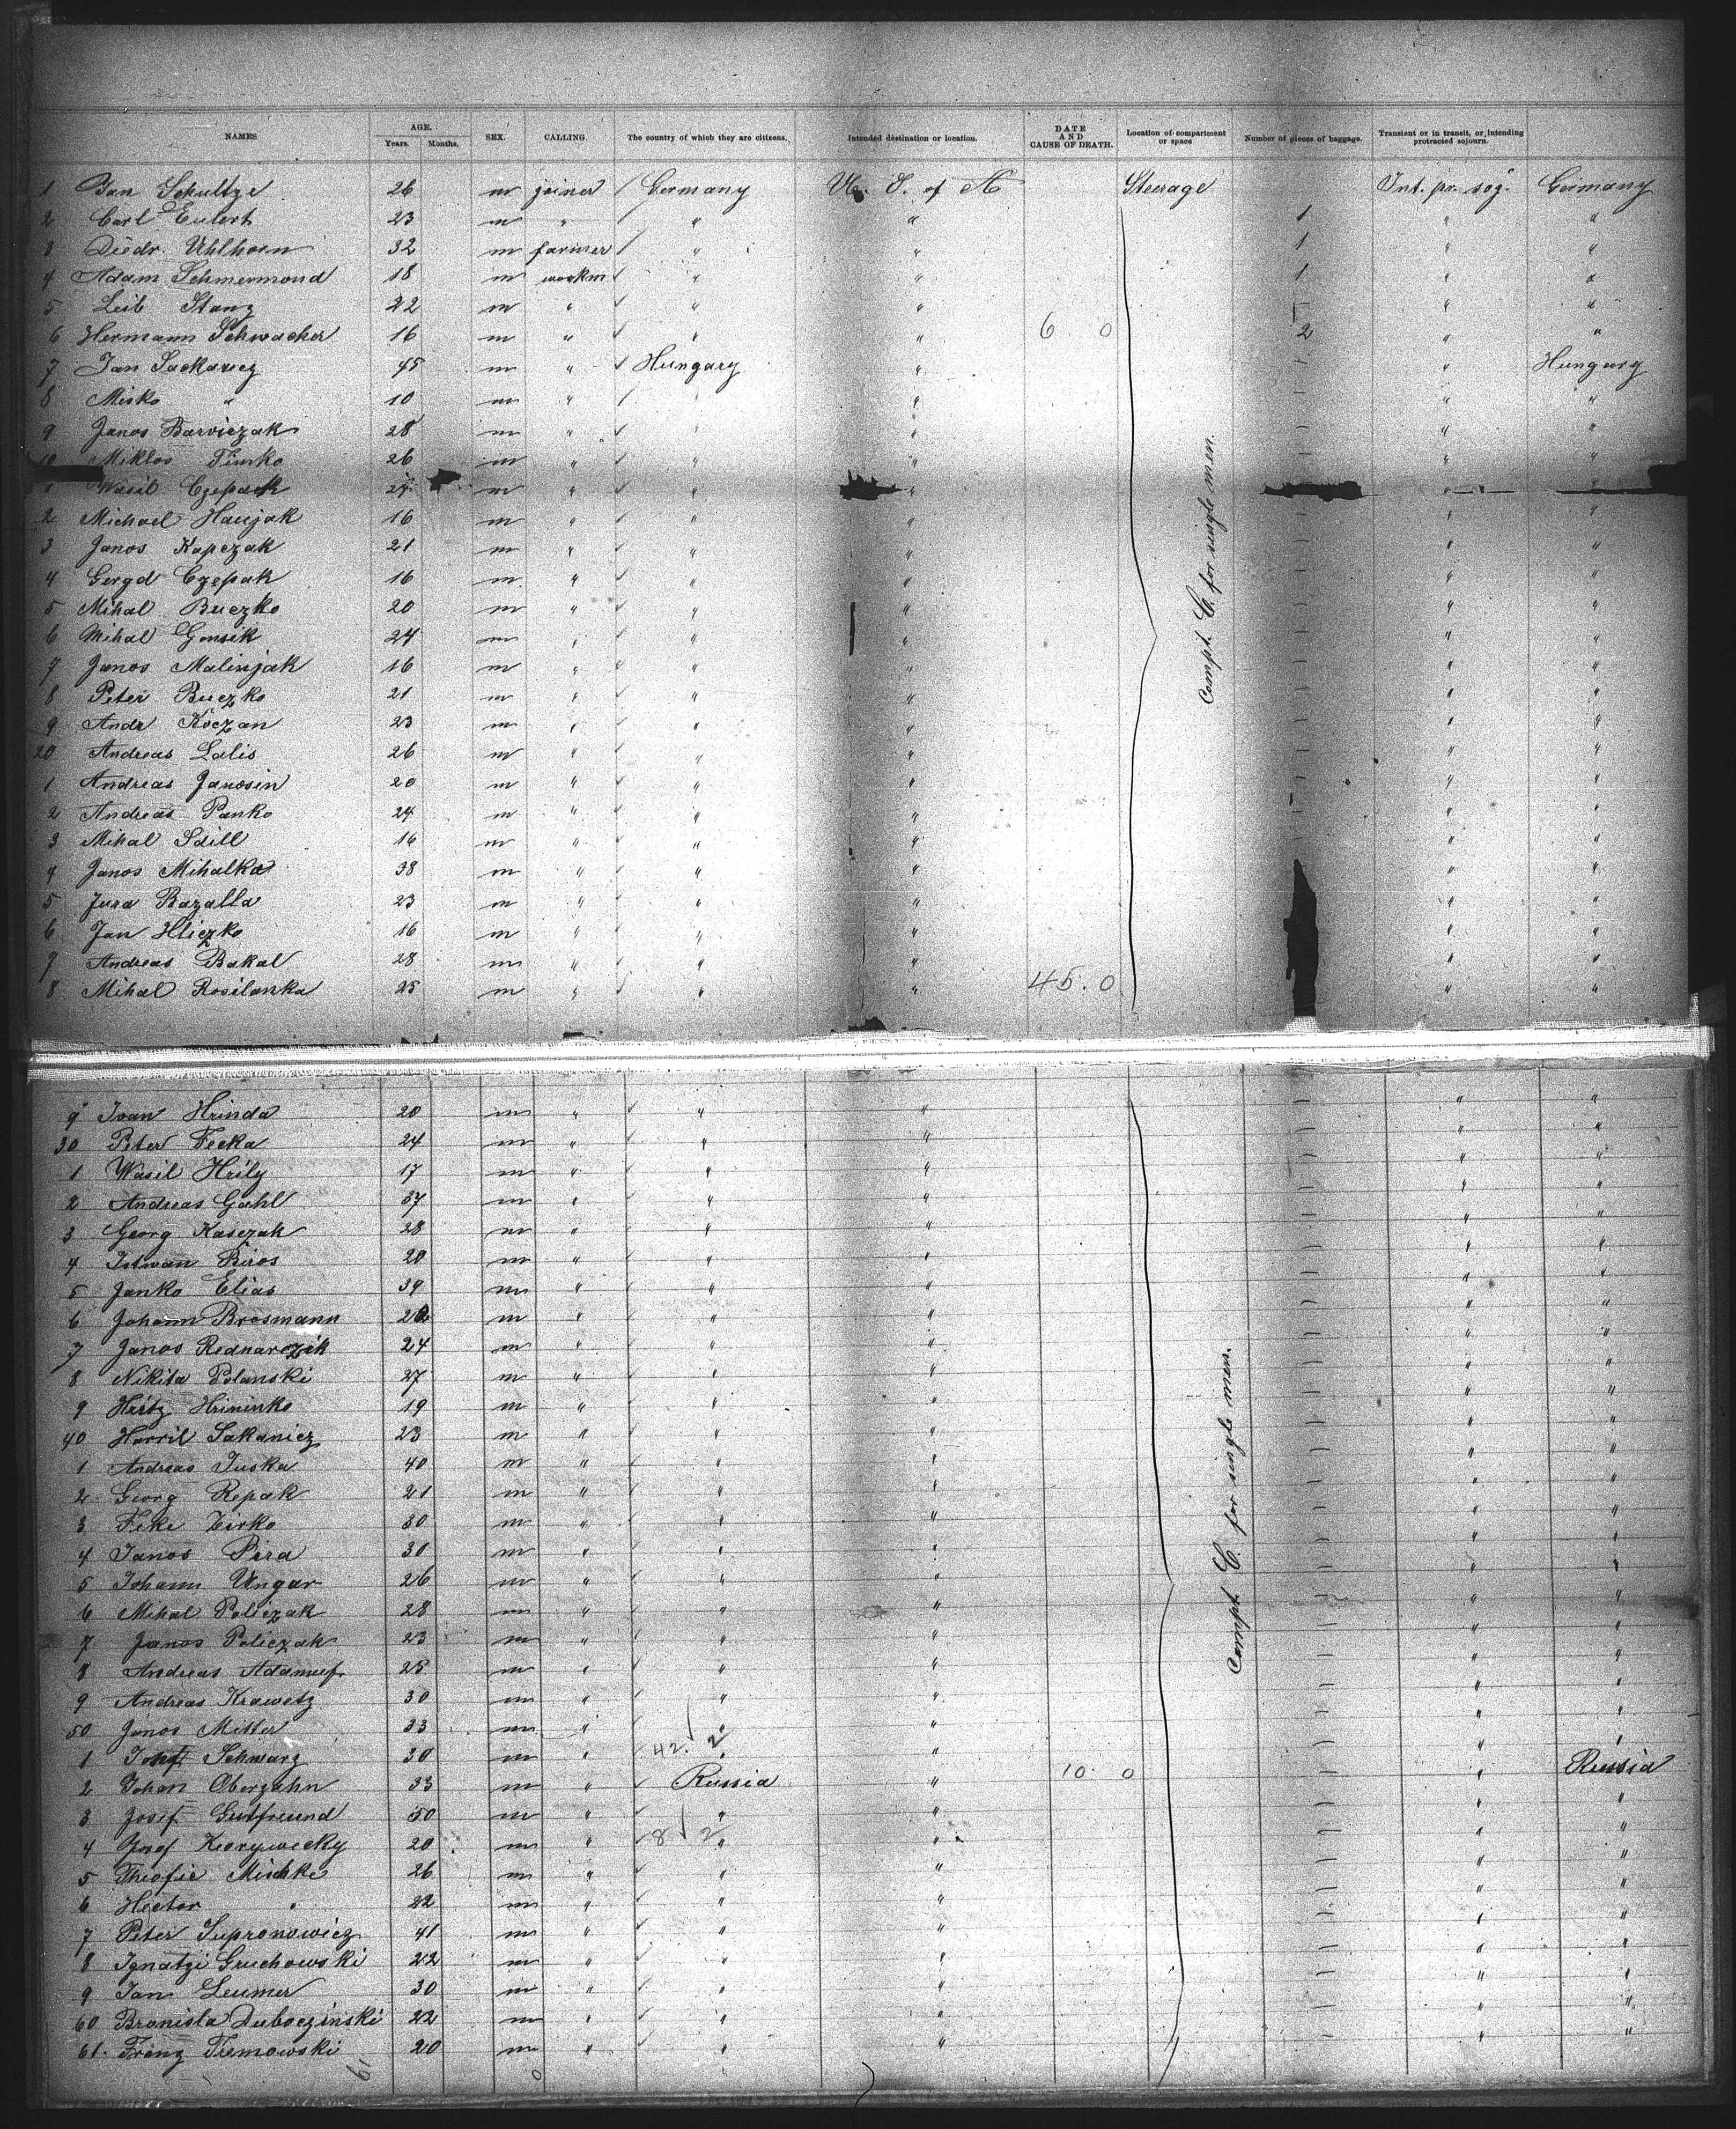 NAMES AGE. Years. Months. SEX. CALLING. The country of which they are citizens. Intended destination or location. DATE AND CAUSE OF DEATH. Location of compartment or space Number of pieces of baggage. Transient or in transit, or intending protracted sojourn.
1 Jan Schultze 26 m joiner Germany U. S. of A Steerage Int. pr. soj. Germany
2 Carl Eulert 23 m " " " 1 " "
3 Diedr. Uhlhorn 32 m farmer " " 1 " "
4 Adam Schmermond 18 m workm " " 1 " "
5 Leib Stang 22 m " " " - " "
6 Hermann Schwacher 16 m " " " 6 0 2 " "
7 Jan 45 m " Hungary " - " Hungary
8 Misko " 10 m " " " - " "
9 Janos Barviczak 28 m " " " - " "
10 Miklos Timko 26 m " " " - " "
1 Wasil Czepak m " " " " "
2 Michael Haujak 16 m " " " - " "
3 Janos Kapczak 21 m " " " - " "
4 Gergd Czepak 16 m " " " - " "
5 Mihal Buczko 20 m " " " - " "
6 Mihal Gonsik 24 m " " " - " "
7 Janos Malinjak 16 m " " " - " "
8 Peter Buczko 21 m " " " - " "
9 Andr Koczan 23 m " " " - " "
20 Andreas Lalis 26 m " " " - " "
1 Andreas Janosin 20 m " " " - " "
2 Andreas Panko 24 m " " " - " "
3 Mihal Sdill 16 m " " " - " "
4 Janos Mihalka 38 m " " " - " "
5 Jura Bazalla 23 m " " " " "
6 Jan Hliczko 16 m " " " " "
7 Andreas Bakal 28 m " " " " "
8 Mihal Rosilanka 25 m " " " 45. 0 " "
Compt. C. for single men.
9 Ivan Hrinda 20 m " " " - " "
30 Peter Fecka 24 m " " " - " "
1 Wasil Hrily 17 m " " " - " "
2 Andreas Gahl 37 m " " " - " "
3 Georg Kasczak 28 m " " " - " "
4 Istwan Biros 20 m " " " - " "
5 Janko Elias 39 m " " " - " "
6 Johann Brosmann m " " " - " "
7 Janos Rednarczik 24 m " " " - " "
8 Nikita Polanski 27 m " " " - " "
9 Hritz Hrininko 19 m " " " - " "
40 Harril Sakanicz 23 m " " " - " "
1 Andreas Juska 40 m " " " - " "
2 Georg Repak 21 m " " " - " "
3 Feke Zirko 30 m " " " - " "
4 Janos Pira 31 m " " " - " "
5 Johann Ungar 26 m " " " - " "
6 Mihal Policzak 28 m " " " - " "
7 Janos Policzak 23 m " " " - " "
8 Andreas 25 m " " " - " "
9 Andreas Krawetz 30 m " " " - " "
50 Janos Mitter 33 m " " " - " "
1 Schwarz 30 m " 42. 2 " " - " "
2 Johan Oberzahn 33 m " Russia " 10. 0 - " Russia
3 Josef Gutfreund 50 m " " " - " "
4 Josef 20 m " 8 2 " " - " "
5 Theofie Mischke 26 m " " " - " "
6 Hector " 22 m " " " - " "
7 Peter Supronowicz 41 m " " " - " "
8 Ignatzi Gruchowski 22 m " " " - " "
9 Jan Leumer 30 m " " " - " "
60 Bronisla Duboczinski 22 m " " " - " "
61. Franz Tremowski 20 m " " " - " "
Compt. C. for single men.
61 0